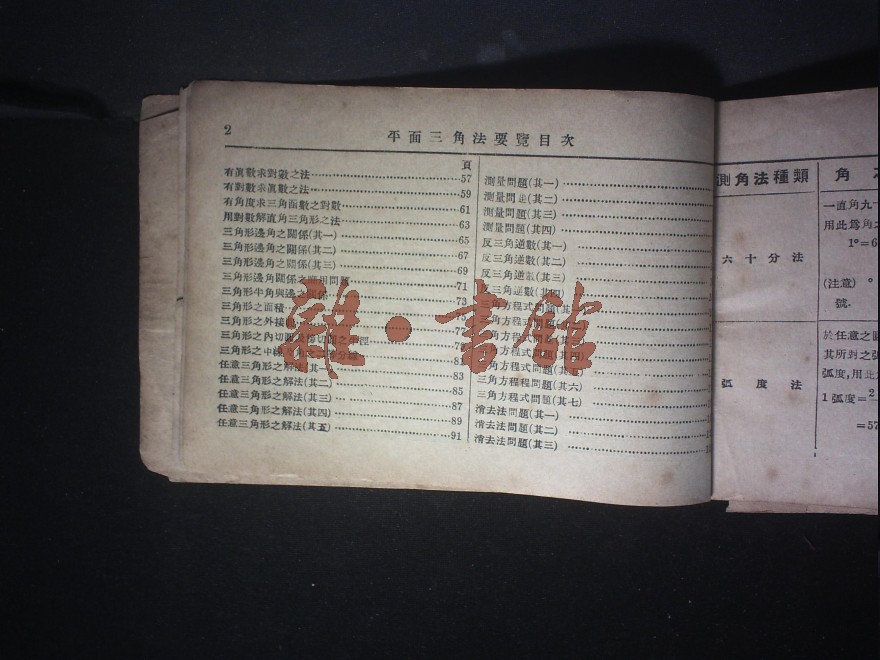 2
平面三角法要覽目次
頁
有眞數求對數之法57
有對數求眞數之法59
有角度求三角函數之對數61
用對數解直角三角形之法63
三角形邊角之關係(其一)65
三角形邊角之關係(其二)67
三角形邊角之關係(其三)69
三角形邊角關係之應用問題71
三角形半角與邊之關係73
三角形之面積
三角形之外接
三角形之內切圓及傍切圓之半徑
三角形之中線及角之二等分線81
任意三角形之解法(其一83
任意三角形之解法(其二)85
任意三角形之解法(其三)87
任意三角形之解法(其四)89
任意三角形之解法(其五)91
測量問題(其一)
測量問題(其二)
測量問題(其三)
測量問題(其四)
反三角逆數(其一)
反三角逆數(其二)
反三角逆數(其三)
反三角逆數(其四
三角方程式問題(其
三角方程式問題
三角方程式問題(其
角方程式問題(其四)
角方程式問題(其五)
三角方程程問題(其六)
三角方程式問題(其七)
消去法問題(其一)
消去法問題(其二)
消去法問題(其三)
雜·書館
測角法種類
角
六十分法
弧度法
一直角九十
用此爲角之
1°=6
(注意)°
號.
於任意之圓
其所對之弧
弧度,用此
1弧度=2
=57